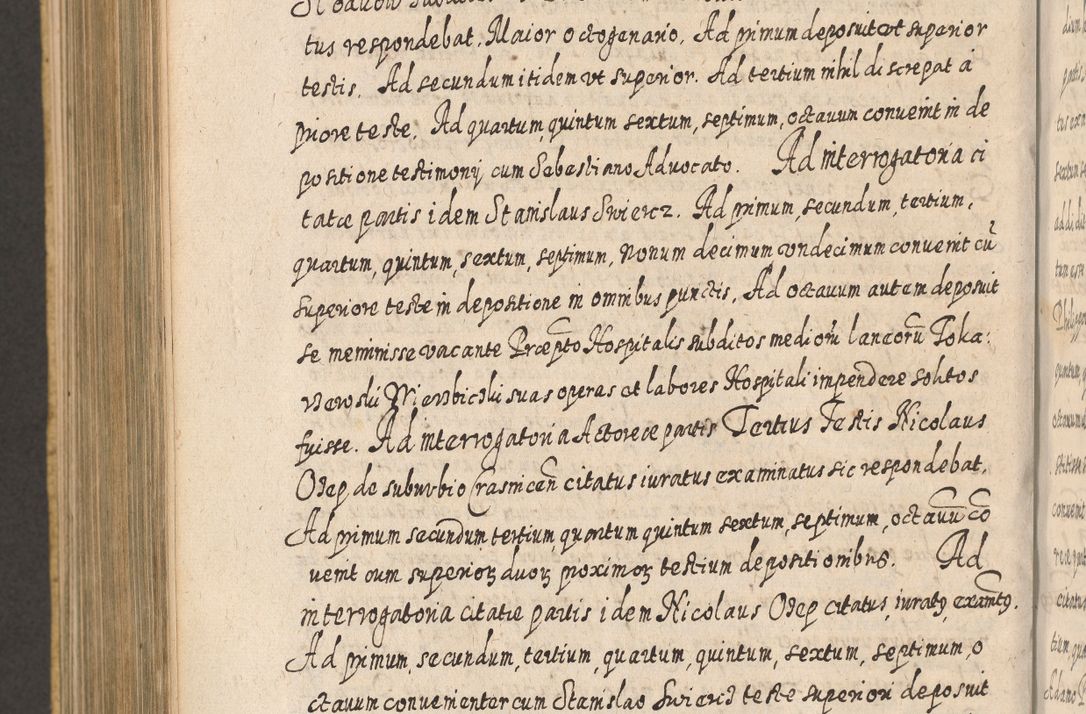 tus respondebat. Maior octogenario. Ad primum deposuit ut superior
testis. Ad secundum itidem vt superior. Ad tertium nihil discrepat à
priore teste. Ad quartum, quintum sextum, septimum, octauum conuenit in de
positione testimonij cum Sebastiano Aduocato. Ad interrogatoria ci
tatæ partis idem Stanislaus Swiercz. Ad primum, secundum, tertium,
quartum, quintum, sextum, septimum, nonum decimum vndecimum conuenit cũ
superiore teste in depositione in omnibus punctis. Ad octauum autem deposuit
se meminisse vacante Præpto Hospitalis subditos medioru laneorũ Toka:
suas operas et labores Hospitali impendere solitos
fuisse. Ad interrogatoria Actoreæ partis Tertius Testis Nicolaus
Ozep de suburbio Crasnicen citatus iuratus examinatus sic respondebat.
Ad primum secundum tertium, quartum quintum sextum, septimum, octauũ cõ
uenit cum superiorꝫ duorꝫ proximorꝫ testium depositionibus. Ad
interrogatoria citatæ partis idem Nicolaus Ozep citatus, iuratꝰ, examtꝰ.
Ad primum, secundum, tertium, quartum, quintum, sextum, septimum, o
ctauum conuenienter cum Stanislao Swiercz teste superiori deposuit